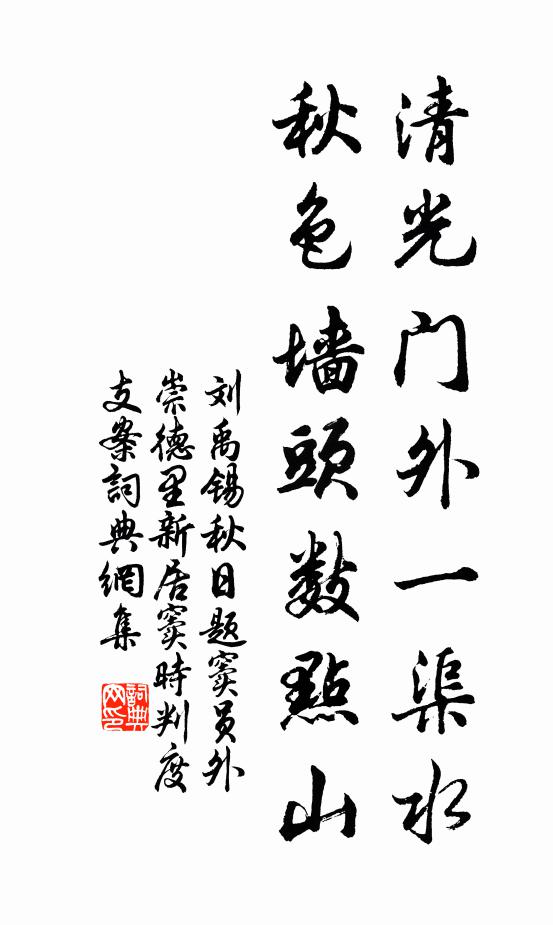 清光门外一渠水
秋色墙頭数點山
刘禹锡秋日题窦员外
崇德里新居窦時判度
支案詞典網集
詞典
网印